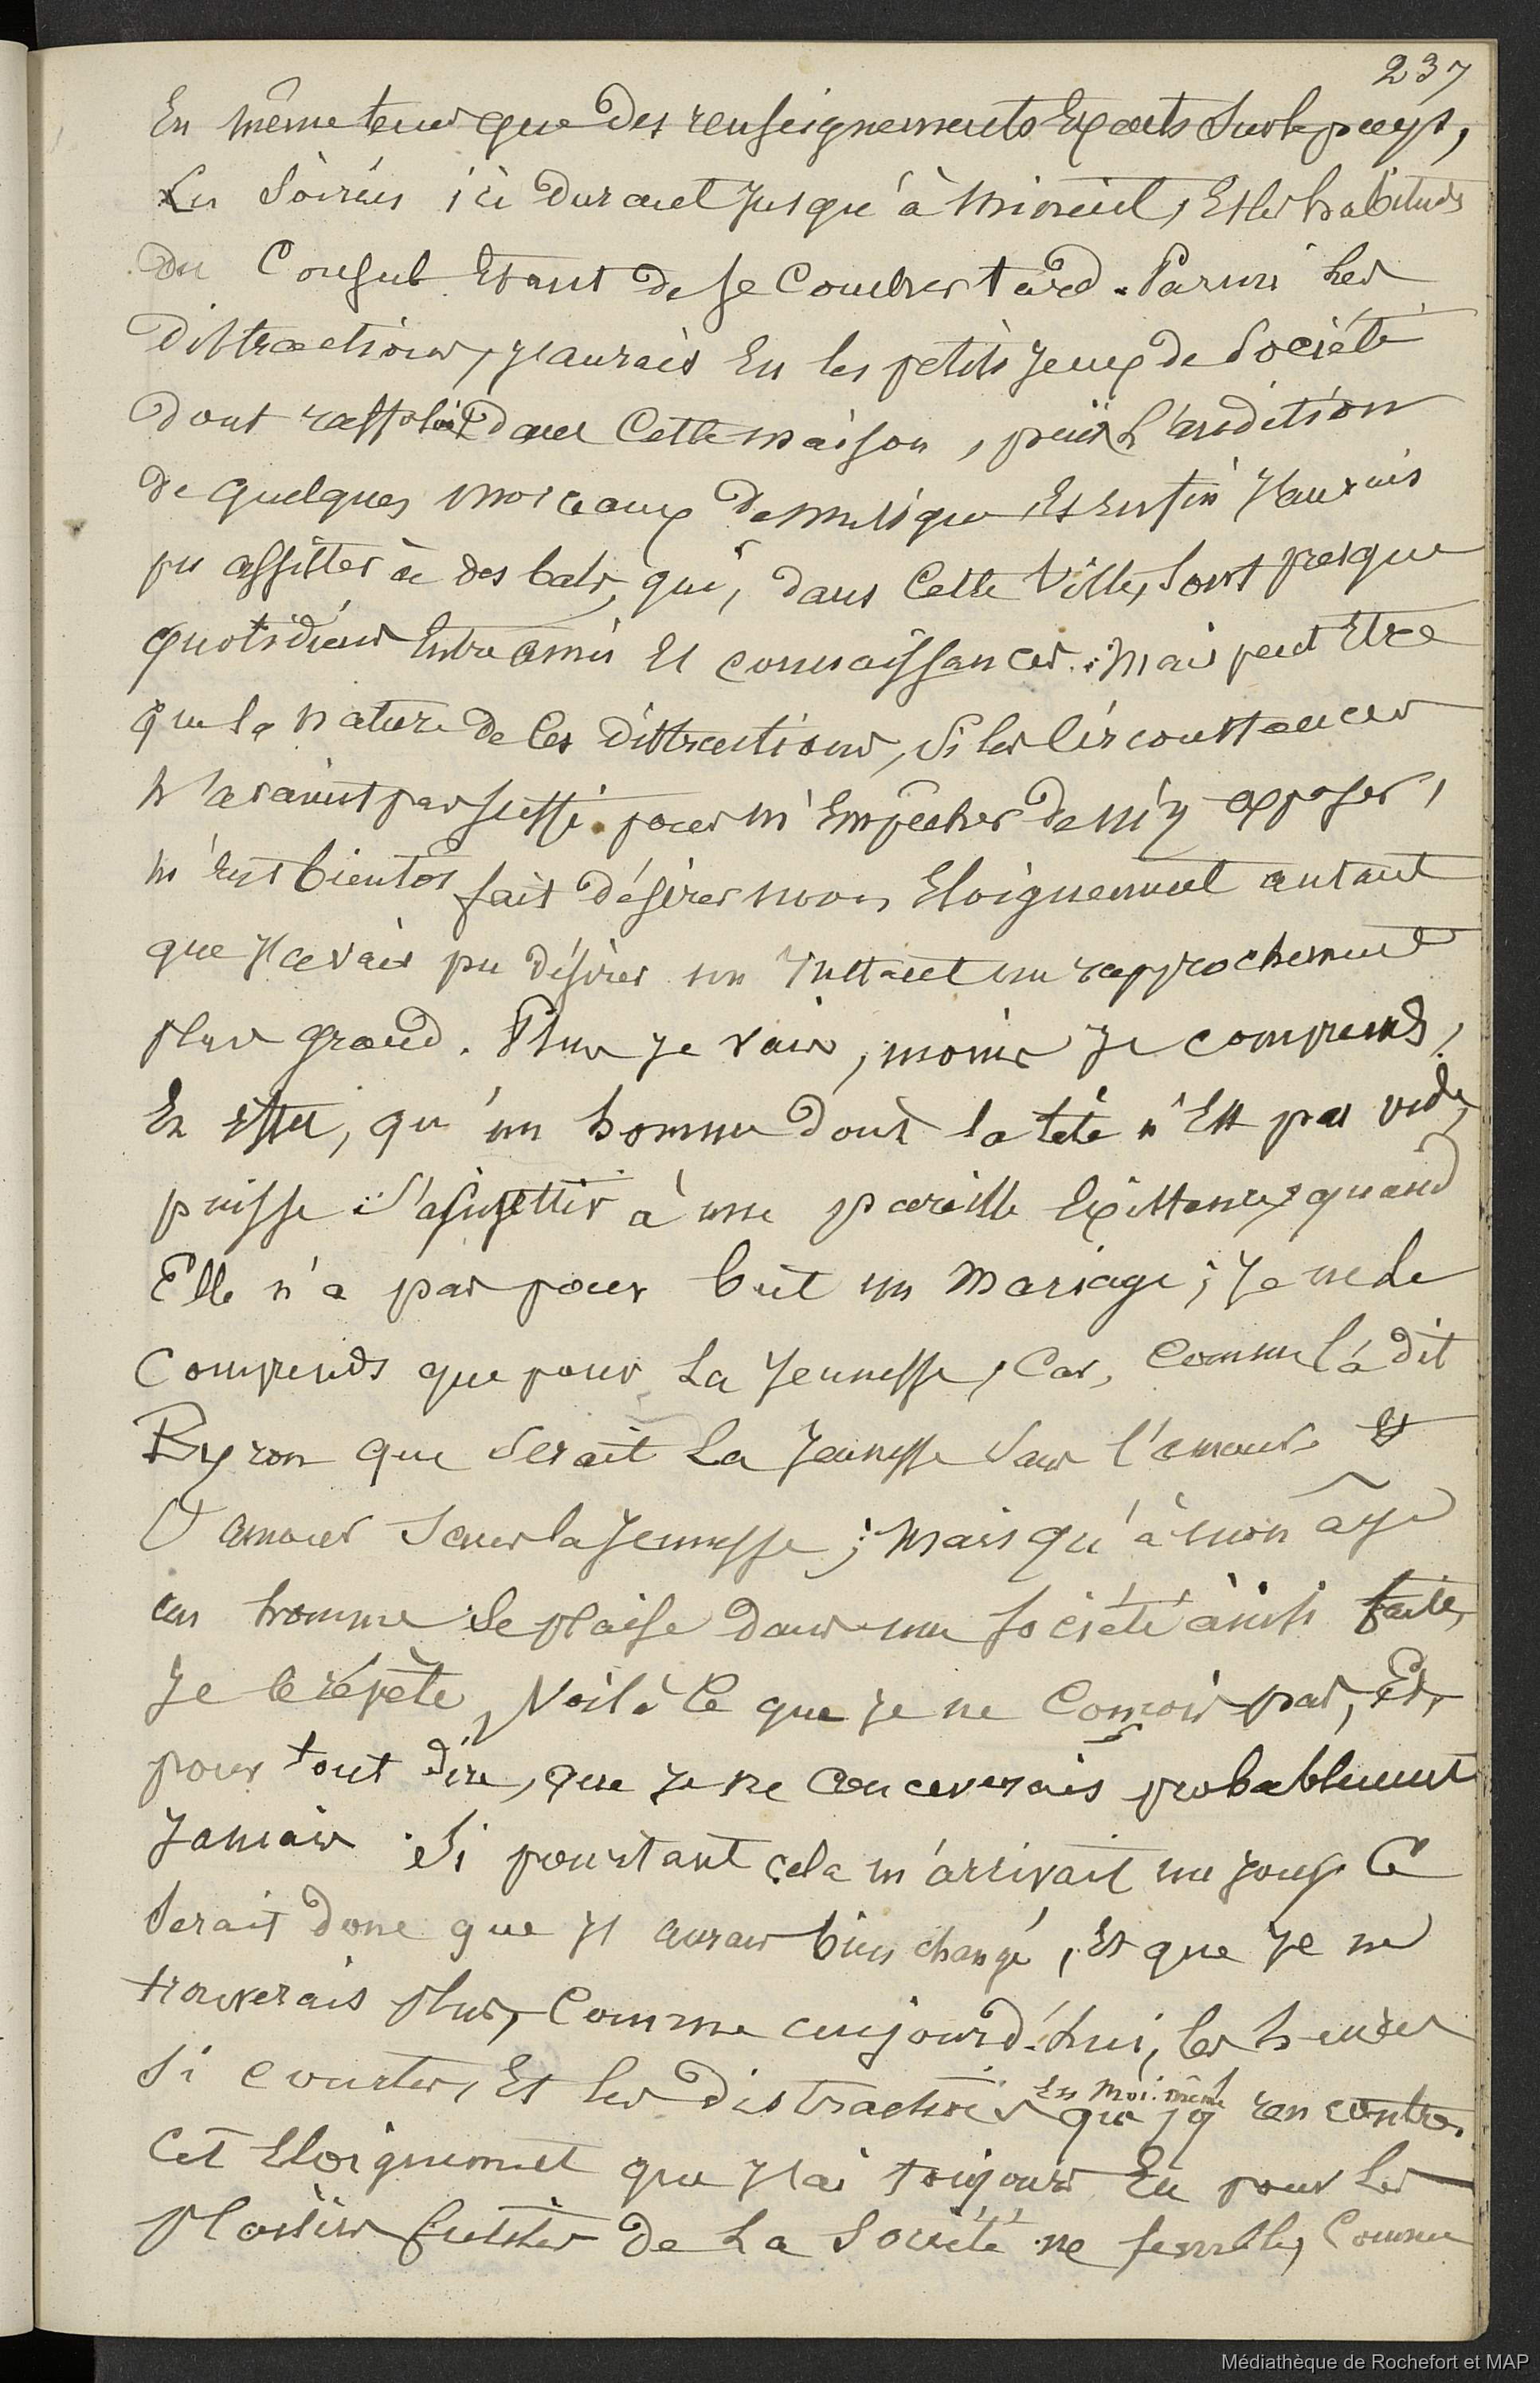 237
En même tems que des renseignements Exacts sur le pays,
Les Soirées ici durant jusqu'à minuit, Et les habitudes
du Consul Etant de se coucher tard. Parmi les
distractions, j'aurais Eu les petits jeux de Société
dont raffolait dans cette maison, puis L'audition
de quelques morceaux de musique Et Enfin j'aurais
pu assister à des bals, qui, dans cette ville, sont presque
quotidiens Entre amis Et connaissances. Mais peut Etre
que la nature de ces distractions, si les circonstances
n'avaient pas suffi pour m'Empêcher de m'y exposer,
m'eut bientôt fait désirer mon Eloignement autant
que j'avais pu désirer un instant un rapprochement
plus grand. Plus je vais, moins je comprends,
En effet, qu'un homme dont la tête n'Est pas vide,
puisse s'assujettir à une pareille Existence, quand
Elle n'a pas pour but un Mariage; je ne le
Comprends que pour La jeunesse, Car, comme l'a dit
Byron que serait La jeunesse sans l'amour Et
L'amour sans la jeunesse; Mais qu'à mon âge
un homme se plaise dans une société ainsi faite,
je le répète, Voilà ce que je ne conçois pas, Et,
pour tout dire, que je ne concevrais probablement
jamais. Si pourtant cela m'arrivait un jour, Ce
serait donc que j'aurais bien changé, Et que je ne
trouverais plus, Comme aujourd'hui, les heures
si courtes, Et les distractions que j'y rencontre
En Moi-même
Cet Eloignement que j'ai toujours Eu pour les
plaisirs futiles de La Société me semble, Comme
Médiathèque de Rochefort et MAP